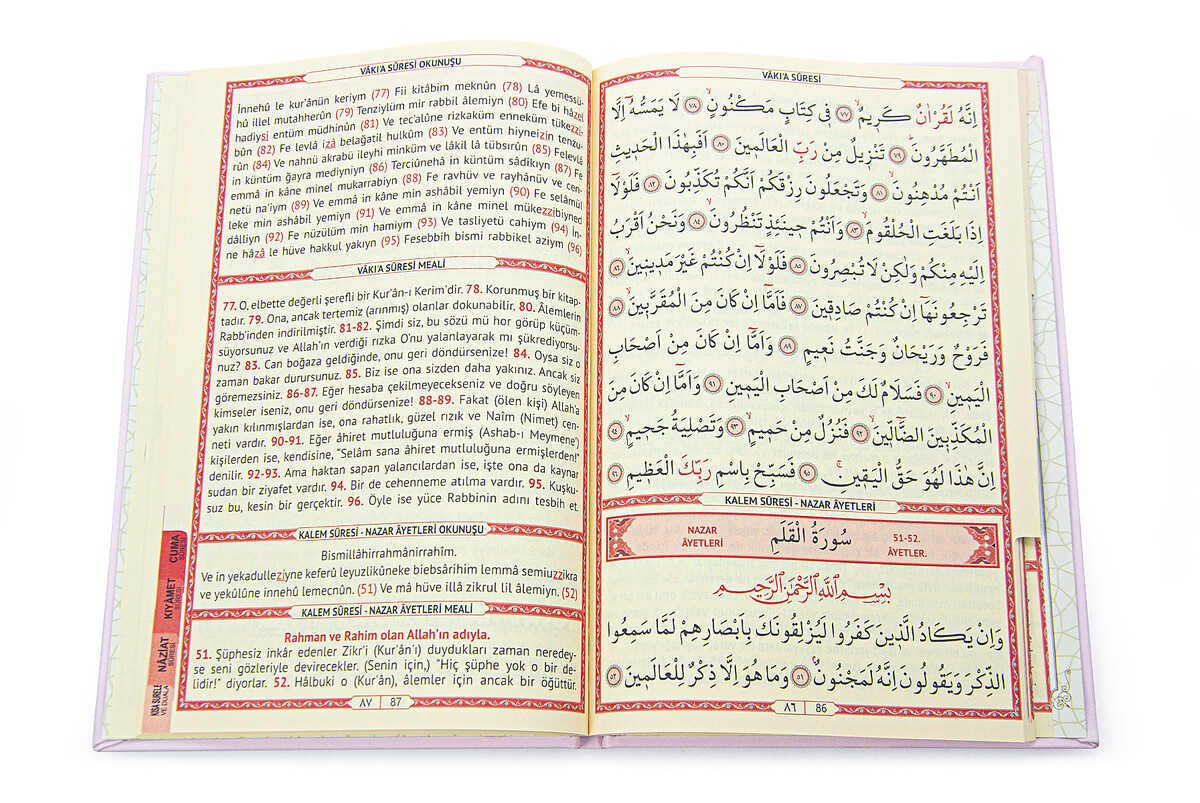 VÂKI'A SÛRESİ OKUNUŞU
İnnehû le kur'ânün keriym (77) Fii kitâbim meknûn (78) Lâ yemessü-
hû illel mutahherûn (79) Tenziylüm mir rabbil âlemiyn (80) Efe bi hâzel
hadiysi entüm müdhinûn (81) Ve tec'alûne rizkaküm enneküm tükezzi-
bûn (82) Fe levlâ izâ belağatil hulkûm (83) Ve entüm hiyneizin tenzu-
rûn (84) Ve nahnü akrabü ileyhi minküm ve lâkil lâ tübsırûn (85) Felevlâ
in küntüm ğayra mediyniyn (86) Terciûnehâ in küntüm sâdikıyn (87) Fe
emmâ in kâne minel mukarrabiyn (88) Fe ravhüv ve rayhânüv ve cen-
netü na'iym (89) Ve emmâ in kâne min ashâbil yemiyn (90) Fe selâmül
leke min ashâbil yemiyn (91) Ve emmâ in kâne minel mükezzibiyned
dâlliyn (92) Fe nüzülüm min hamiym (93) Ve tasliyetü cahiym (94) İn-
ne hâzâ le hüve hakkul yakıyn (95) Fesebbih bismi rabbikel aziym (96)
VÂKI'A SÛRESİ MEALİ
77. O, elbette değerli şerefli bir Kur'ân-ı Kerim'dir. 78. Korunmuş bir kitap-
tadır. 79. Ona, ancak tertemiz (arınmış) olanlar dokunabilir. 80. Âlemlerin
Rabb'inden indirilmiştir. 81-82. Şimdi siz, bu sözü mü hor görüp küçüm-
süyorsunuz ve Allah'ın verdiği rızka O'nu yalanlayarak mı şükrediyorsu-
nuz? 83. Can boğaza geldiğinde, onu geri döndürsenize! 84. Oysa siz o
zaman bakar durursunuz. 85. Biz ise ona sizden daha yakınız. Ancak siz
göremezsiniz. 86-87. Eğer hesaba çekilmeyecekseniz ve doğru söyleyen
kimseler iseniz, onu geri döndürsenize! 88-89. Fakat (ölen kişi) Allah'a
yakın kılınmışlardan ise, ona rahatlık, güzel rızık ve Naîm (Nimet) cen-
neti vardır. 90-91. Eğer âhiret mutluluğuna ermiş (Ashab-ı Meymene')
kişilerden ise, kendisine, "Selâm sana âhiret mutluluğuna ermişlerden!"
denilir. 92-93. Ama haktan sapan yalancılardan ise, işte ona da kaynar
sudan bir ziyafet vardır. 94. Bir de cehenneme atılma vardır. 95. Kuşku-
suz bu, kesin bir gerçektir. 96. Öyle ise yüce Rabbinin adını tesbih et.
KALEM SÛRESİ - NAZAR ÂYETLERİ OKUNUŞU
Bismillâhirrahmânirrahîm.
Ve in yekadulleziyne keferû leyuzlikûneke biebsârihim lemmâ semiuzzikra
ve yekûlûne innehû lemecnûn. (51) Ve mâ hüve illâ zikrul lil âlemiyn. (52)
KALEM SÛRESİ - NAZAR ÂYETLERİ MEALİ
Rahman ve Rahim olan Allah'ın adıyla.
51. Şüphesiz inkâr edenler Zikr'i (Kur'ân'ı) duydukları zaman neredey-
se seni gözleriyle devirecekler. (Senin için,) "Hiç şüphe yok o bir de-
lidir!" diyorlar. 52. Hâlbuki o (Kur'ân), âlemler için ancak bir öğüttür.
٨٧ 87
CUMA
SÛRESİ
KIYÂMET
SÛRESİ
NÂZİAT
SÛRESİ
KISA SÛRELER
VE DUALAR
VÂKI'A SÛRESİ
اِنَّهُ لَقُرْاٰنٌ كَر۪يمٌۙ ﴿٧٧﴾ ف۪ي كِتَابٍ مَكْنُونٍۙ ﴿٧٨﴾ لَا يَمَسُّهُٓ اِلَّا
الْمُطَهَّرُونَۜ ﴿٧٩﴾ تَنْز۪يلٌ مِنْ رَبِّ الْعَالَم۪ينَ ﴿٨٠﴾ اَفَبِهٰذَا الْحَد۪يثِ
اَنْتُمْ مُدْهِنُونَۙ ﴿٨١﴾ وَتَجْعَلُونَ رِزْقَكُمْ اَنَّكُمْ تُكَذِّبُونَ ﴿٨٢﴾ فَلَوْلَٓا
اِذَا بَلَغَتِ الْحُلْقُومَۙ ﴿٨٣﴾ وَاَنْتُمْ ح۪ينَئِذٍ تَنْظُرُونَۙ ﴿٨٤﴾ وَنَحْنُ اَقْرَبُ
اِلَيْهِ مِنْكُمْ وَلٰكِنْ لَا تُبْصِرُونَ ﴿٨٥﴾ فَلَوْلَٓا اِنْ كُنْتُمْ غَيْرَ مَد۪ين۪ينَۙ ﴿٨٦﴾
تَرْجِعُونَهَٓا اِنْ كُنْتُمْ صَادِق۪ينَ ﴿٨٧﴾ فَاَمَّٓا اِنْ كَانَ مِنَ الْمُقَرَّب۪ينَۙ ﴿٨٨﴾
فَرَوْحٌ وَرَيْحَانٌ وَجَنَّتُ نَع۪يمٍ ﴿٨٩﴾ وَاَمَّٓا اِنْ كَانَ مِنْ اَصْحَابِ
الْيَم۪ينِۙ ﴿٩٠﴾ فَسَلَامٌ لَكَ مِنْ اَصْحَابِ الْيَم۪ينِ ﴿٩١﴾ وَاَمَّٓا اِنْ كَانَ مِنَ
الْمُكَذِّب۪ينَ الضَّٓالّ۪ينَۙ ﴿٩٢﴾ فَنُزُلٌ مِنْ حَم۪يمٍۙ ﴿٩٣﴾ وَتَصْلِيَةُ جَح۪يمٍۙ ﴿٩٤﴾
اِنَّ هٰذَا لَهُوَ حَقُّ الْيَق۪ينِۚ ﴿٩٥﴾ فَسَبِّحْ بِاسْمِ رَبِّكَ الْعَظ۪يمِ ﴿٩٦﴾
KALEM SÛRESİ - NAZAR ÂYETLERİ
NAZAR
ÂYETLERİ
سُورَةُ الْقَلَمِ
51-52.
ÂYETLER.
بِسْمِ اللّٰهِ الرَّحْمٰنِ الرَّح۪يمِ
وَاِنْ يَكَادُ الَّذ۪ينَ كَفَرُوا لَيُزْلِقُونَكَ بِاَبْصَارِهِمْ لَمَّا سَمِعُوا
الذِّكْرَ وَيَقُولُونَ اِنَّهُ لَمَجْنُونٌۢ ﴿٥١﴾ وَمَا هُوَ اِلَّا ذِكْرٌ لِلْعَالَم۪ينَ ﴿٥٢﴾
٨٦ 86